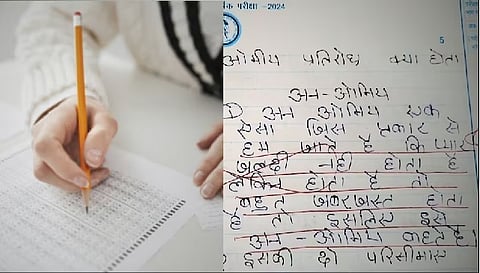 परीक्षा -2024
5
ओमीय प्रतिरोध क्या होता
अन-ओमिय
① अन ओमिय एक
ऐसा जिस प्रकार से
हम जानते है कि प्यार
जबर्दी नही होता है
लेकिन होता है तो
बहुत जबरजस्त होता
है तो इसलिए इसे
अन-ओमिय कहते है।
इसकी दो परिसीमाए